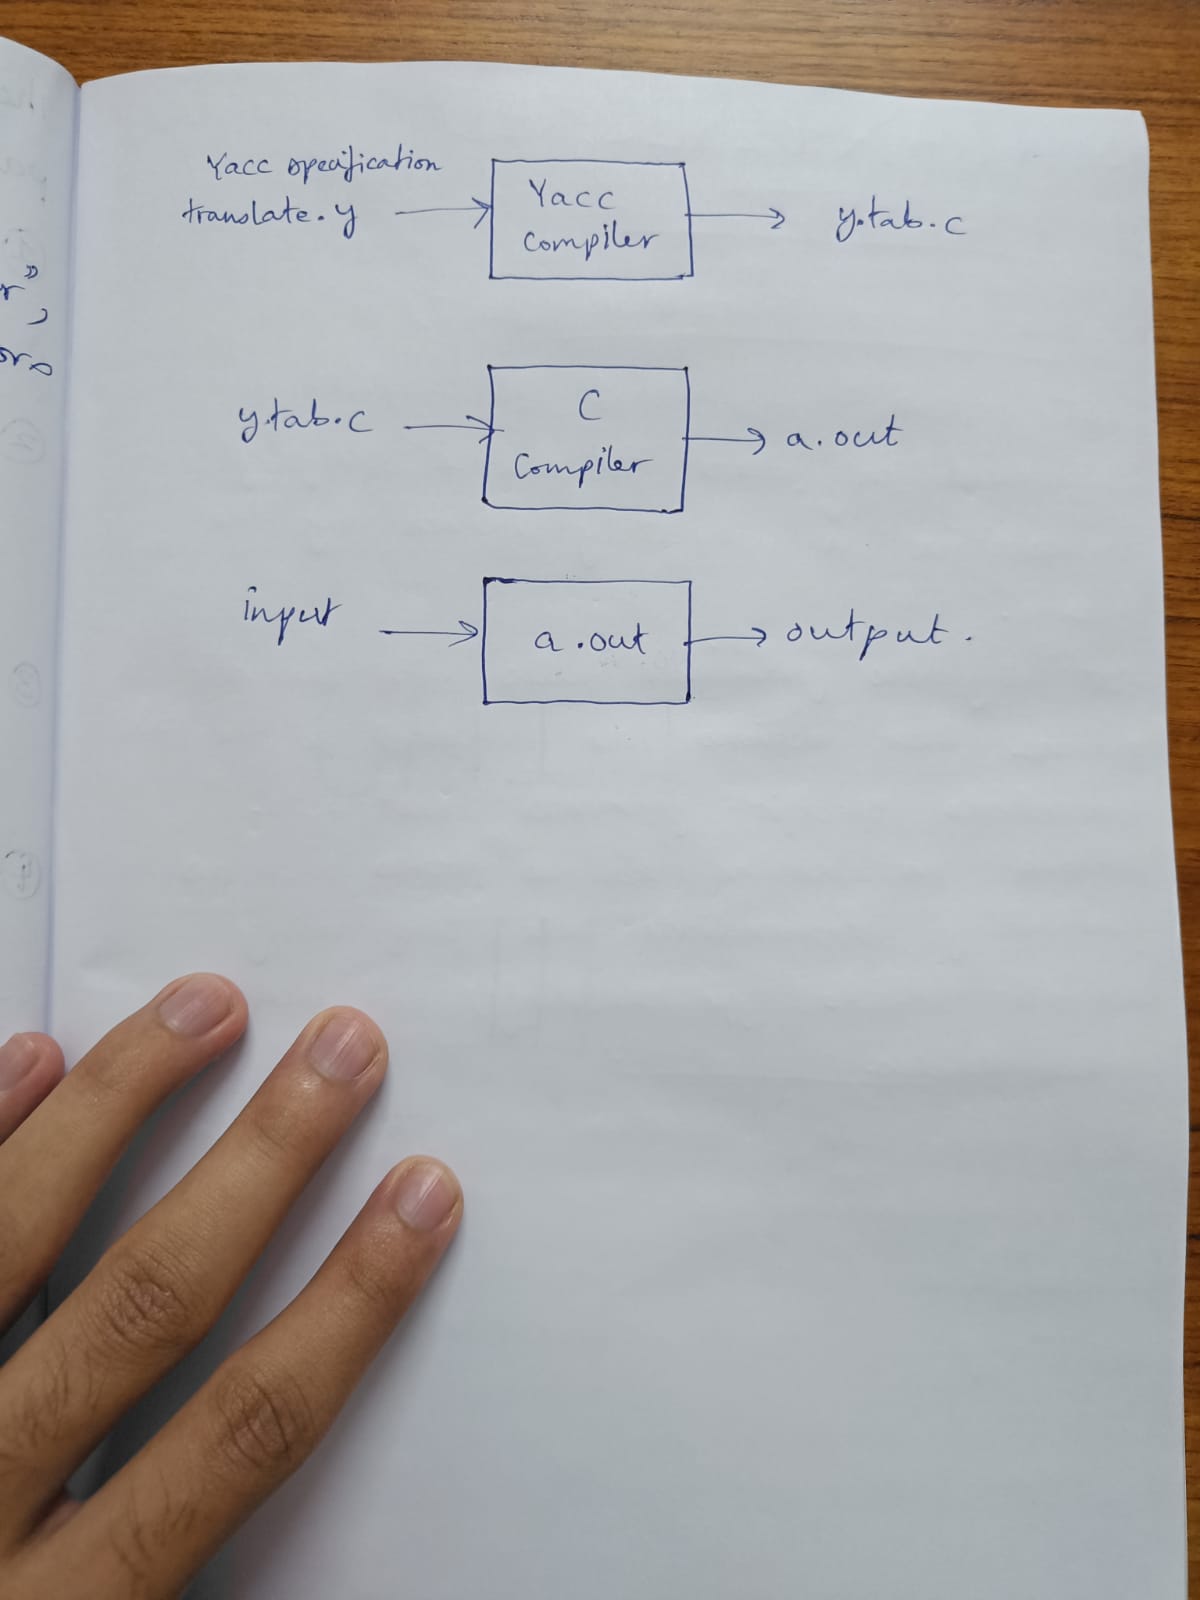 Yacc specification
translate.y
Yacc
Compiler
y.tab.c
y.tab.c
C
Compiler
a.out
input
a.out
output.